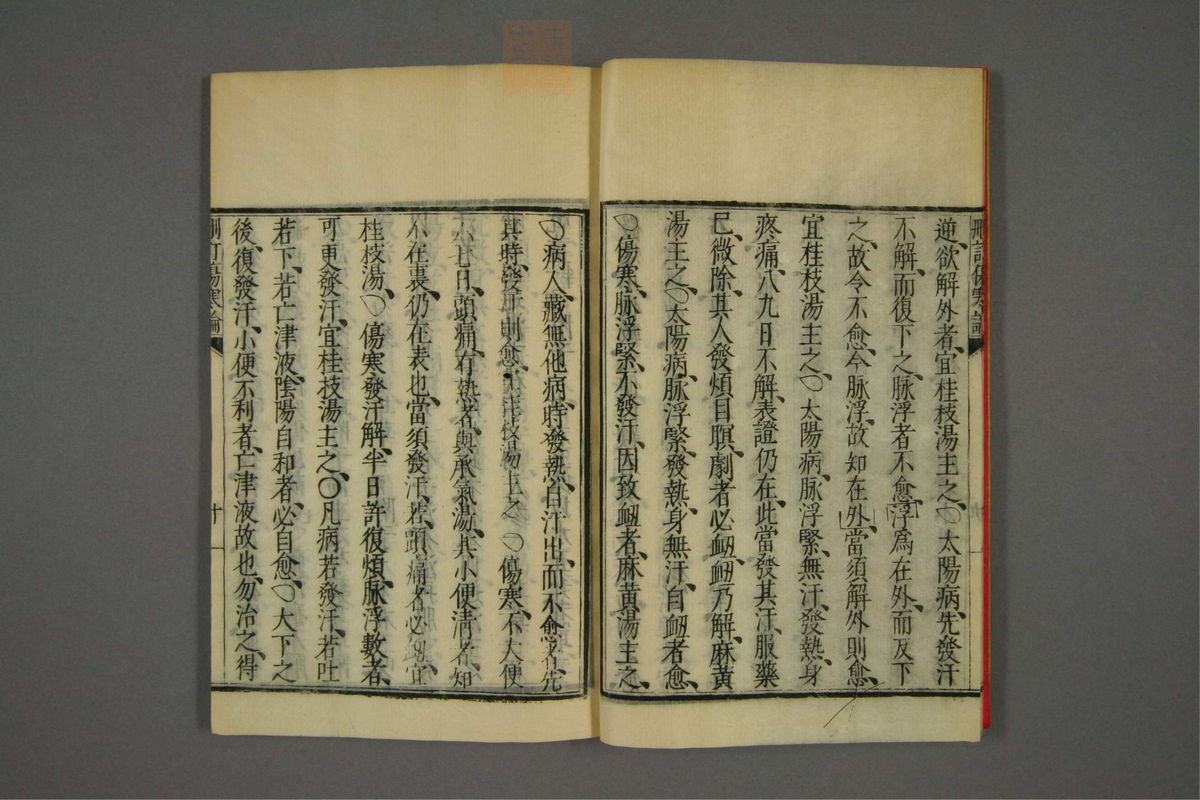 逆、欲解外者、宜桂枝湯主之、〇太陽病、先發汗
不解、而復下之、脉浮者不愈、浮爲在外、而反下
之、故令不愈、今脉浮、故知在外、當須解外則愈、
宜桂枝湯主之、〇太陽病、脉浮緊、無汗、發熱、身
疼痛、八九日不解、表證仍在、此當發其汗、服藥
已、微除、其人發煩目瞑、劇者必衂、衂乃解、麻黃
湯主之、〇太陽病、脉浮緊、發熱、身無汗、自衂者愈、
〇傷寒、脉浮緊、不發汗、因致衂者、麻黃湯主之、
〇病人、藏無他病、時發熱、自汗出、而不愈者、先
其時、發汗則愈、桂枝湯主之、〇傷寒、不大便
六七日、頭痛、有熱者、與承氣湯、其小便清者、知
不在裏、仍在表也、當須發汗、若頭痛者必衂、宜
桂枝湯、〇傷寒發汗解、半日許復煩、脉浮數者、
可更發汗、宜桂枝湯主之、〇凡病若發汗、若吐
若下、若亡津液、陰陽自和者、必自愈、〇大下之
後、復發汗、小便不利者、亡津液故也、勿治之、得
刪訂傷寒論
十